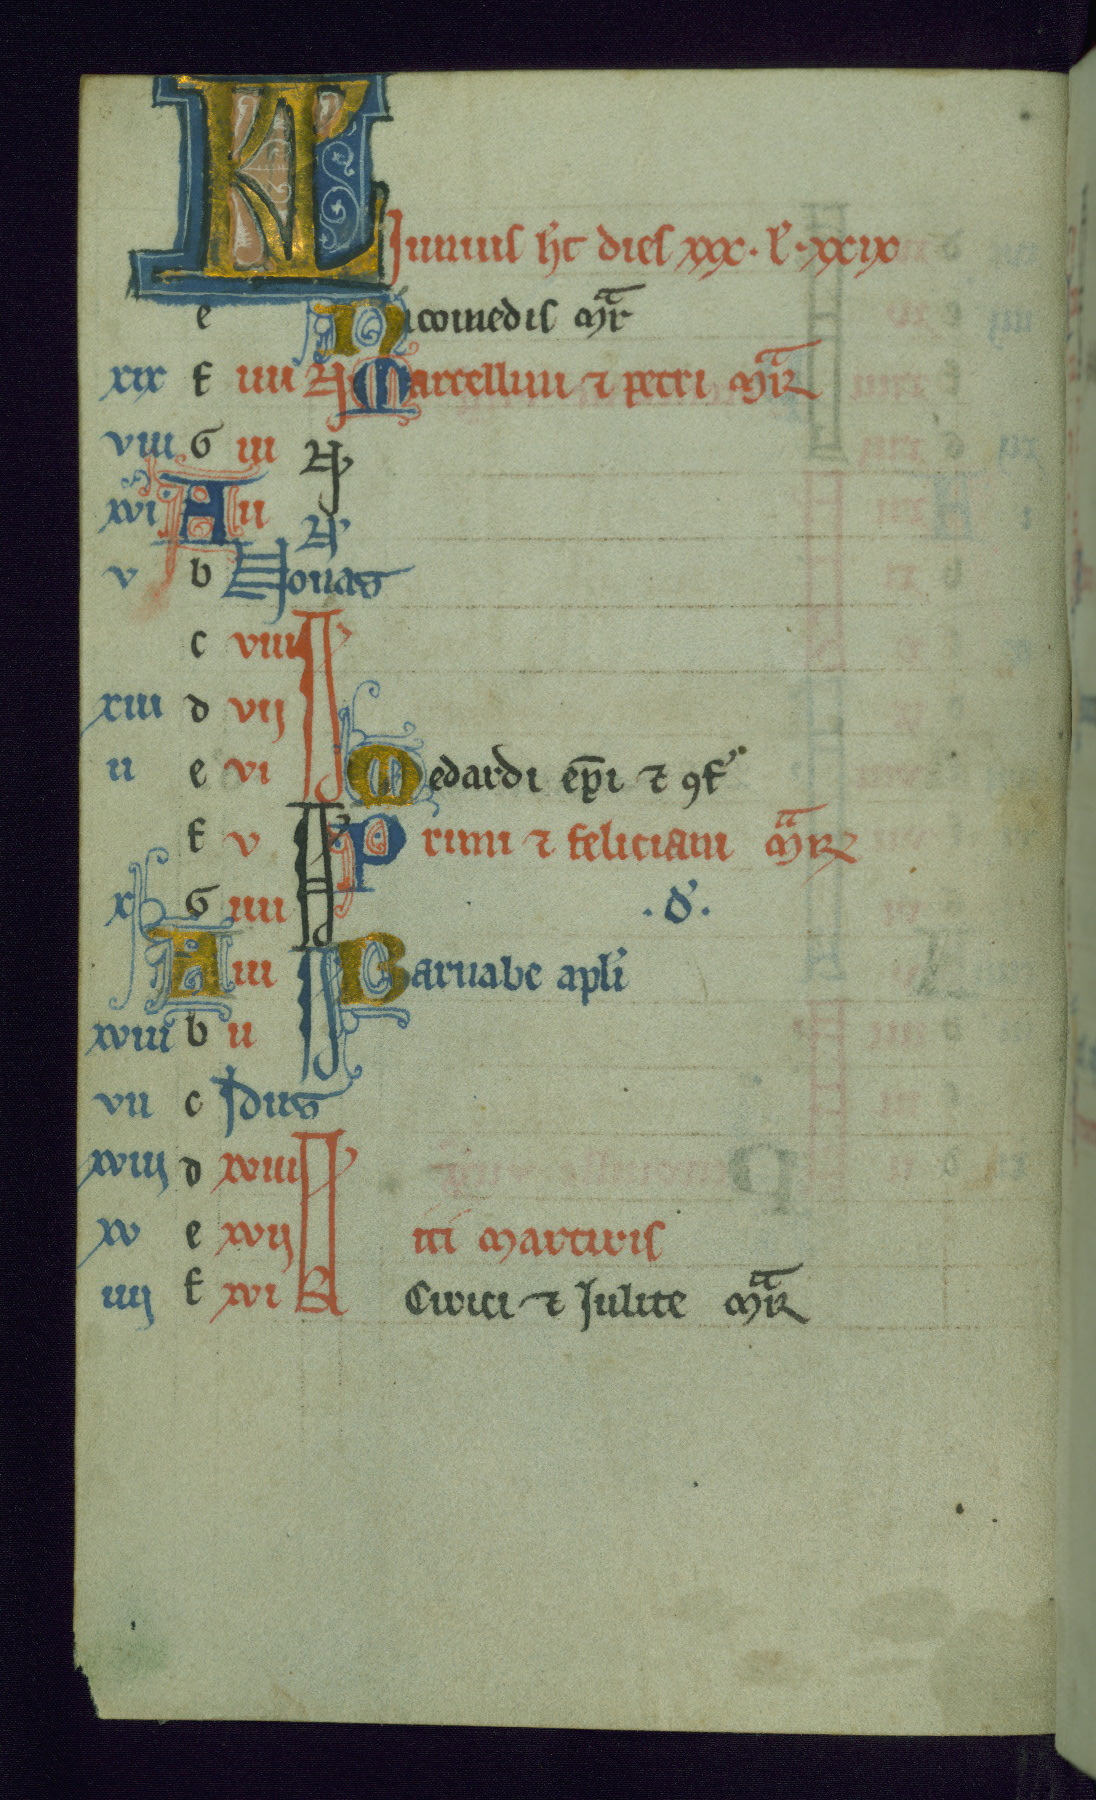 KL Junius hт dies xxx. l'. xxix
e Nicomedis mr
xix f iiii N Marcellini ⁊ petri mr
viii G iii N
xvi A ii N
v b Nonas
c viii I
xiii d vii
ii e vi Medardi epi ⁊ 9f
f v Primi ⁊ feliciani mr
x G iiii .d'.
A iii Barnabe apli
xviii b ii
vii c Idus
xviii d xviii
xv e xvii iti martiris
iiii f xvi kl Cirici ⁊ Julite mr